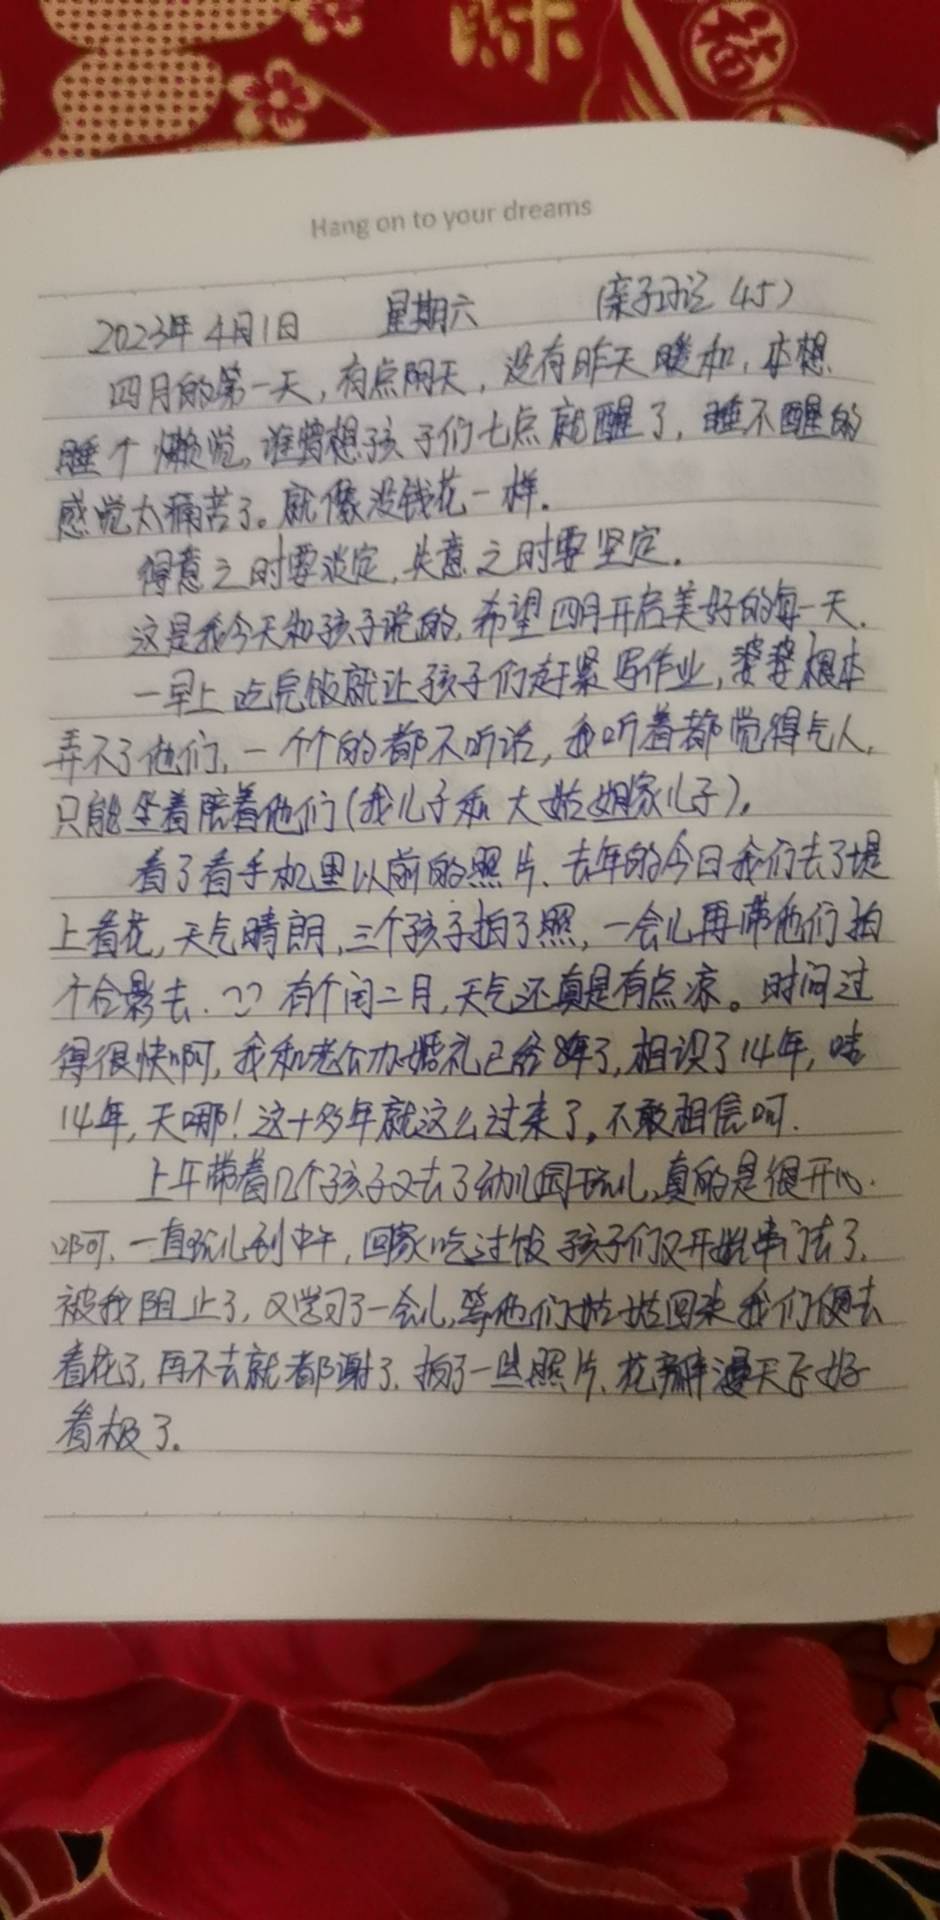 Hang on to your dreams
2023年4月1日 星期六 (亲子日记 45)
四月的第一天，有点阴天，没有昨天暖和，本想
睡个懒觉，谁曾想孩子们七点就醒了，睡不醒的
感觉太痛苦了。就像没钱花一样.
得意之时要淡定，失意之时要坚定.
这是我今天和孩子说的，希望四月开启美好的每一天.
一早上吃完饭就让孩子们赶紧写作业，婆婆根本
弄不了他们，一个个的都不听话，我听着都觉得气人，
只能坐着陪着他们(我儿子和大姑姐家儿子)。
看了看手机里以前的照片、去年的今日我们去了堤
上看花，天气晴朗，三个孩子拍了照，一会儿再带他们拍
个合影去. 有个闰二月，天气还真是有点凉。时间过
得很快啊，我和老公办婚礼已经8年了，相识了14年，哇
14年，天哪！这十多年就这么过来了，不敢相信呵.
上午带着几个孩子又去了幼儿园玩儿，真的是很开心.
啊、一直玩儿到中午，回家吃过饭孩子们又开始串门去了，
被我阻止了，又学习了一会儿，等他们姑姑回来我们便去
看花了，再不去就都谢了、拍了一些照片、花瓣漫天飞好
看极了。